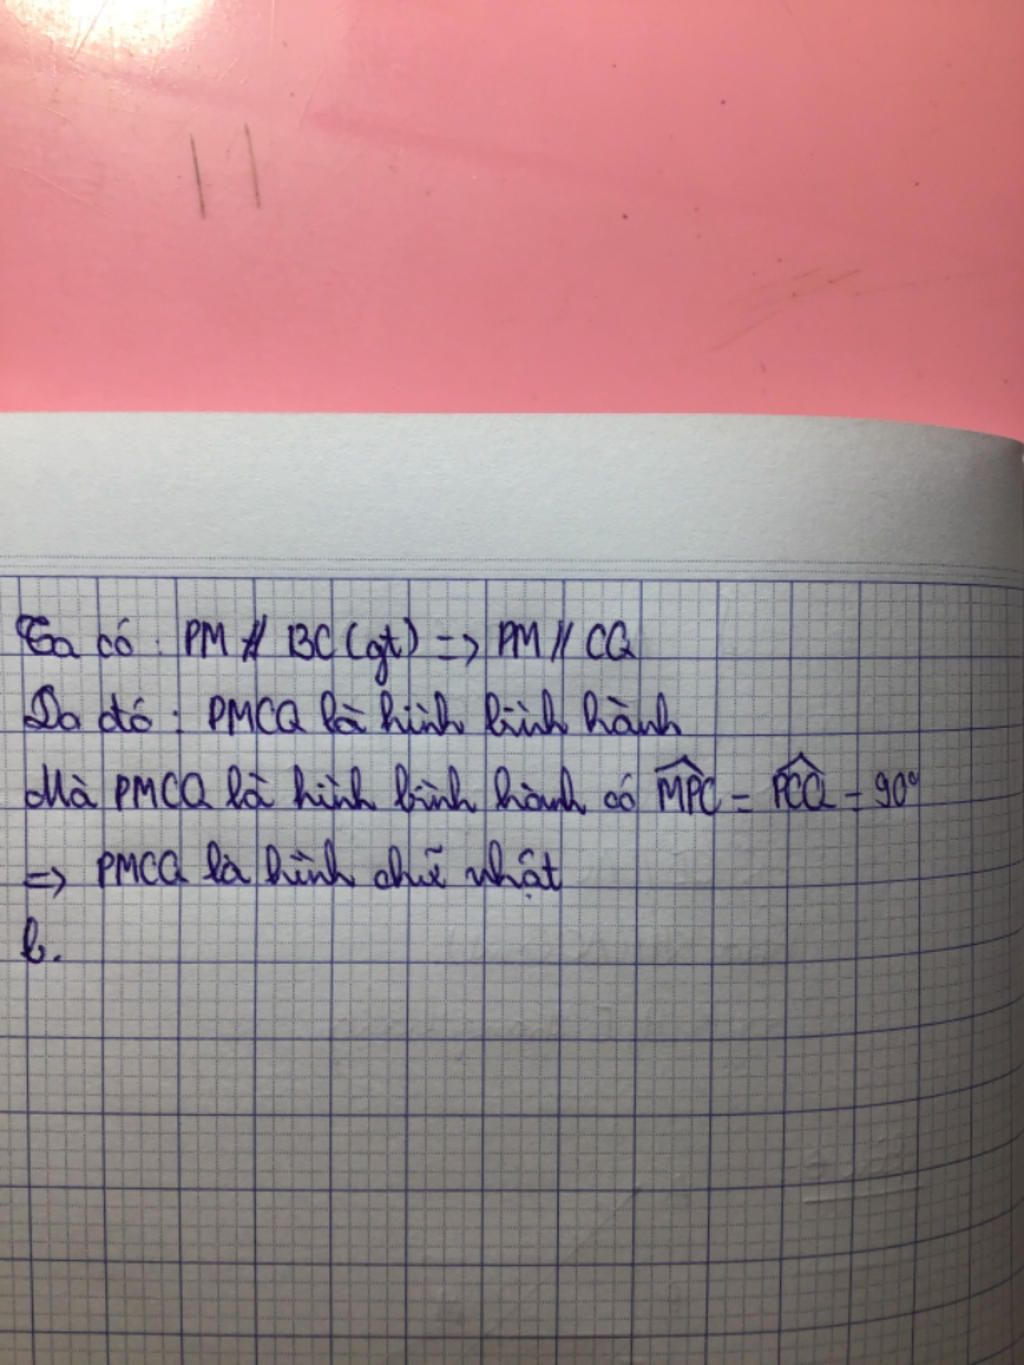 Ta có : PM // BC (gt) => PM // CQ
Do đó : PMCQ là hình bình hành
Mà PMCQ là hình bình hành có MPC = PCQ = 90°
=> PMCQ là hình chữ nhật
b.